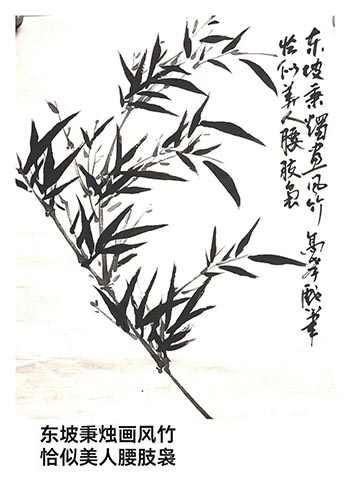 东坡秉燭画风竹 戏笔
恰似美人腰肢袅
东坡秉烛画风竹
恰似美人腰肢袅